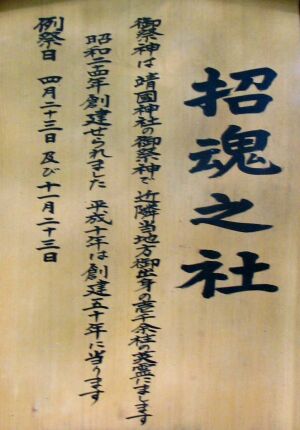 招魂之社
御祭神は 靖國神社の御祭神で 近隣当地方御出身の壱千余社の英霊にまします
昭和二十四年創建せられました 平成十年は創建五十年に当ります
例祭日 四月二十三日及び十一月二十三日